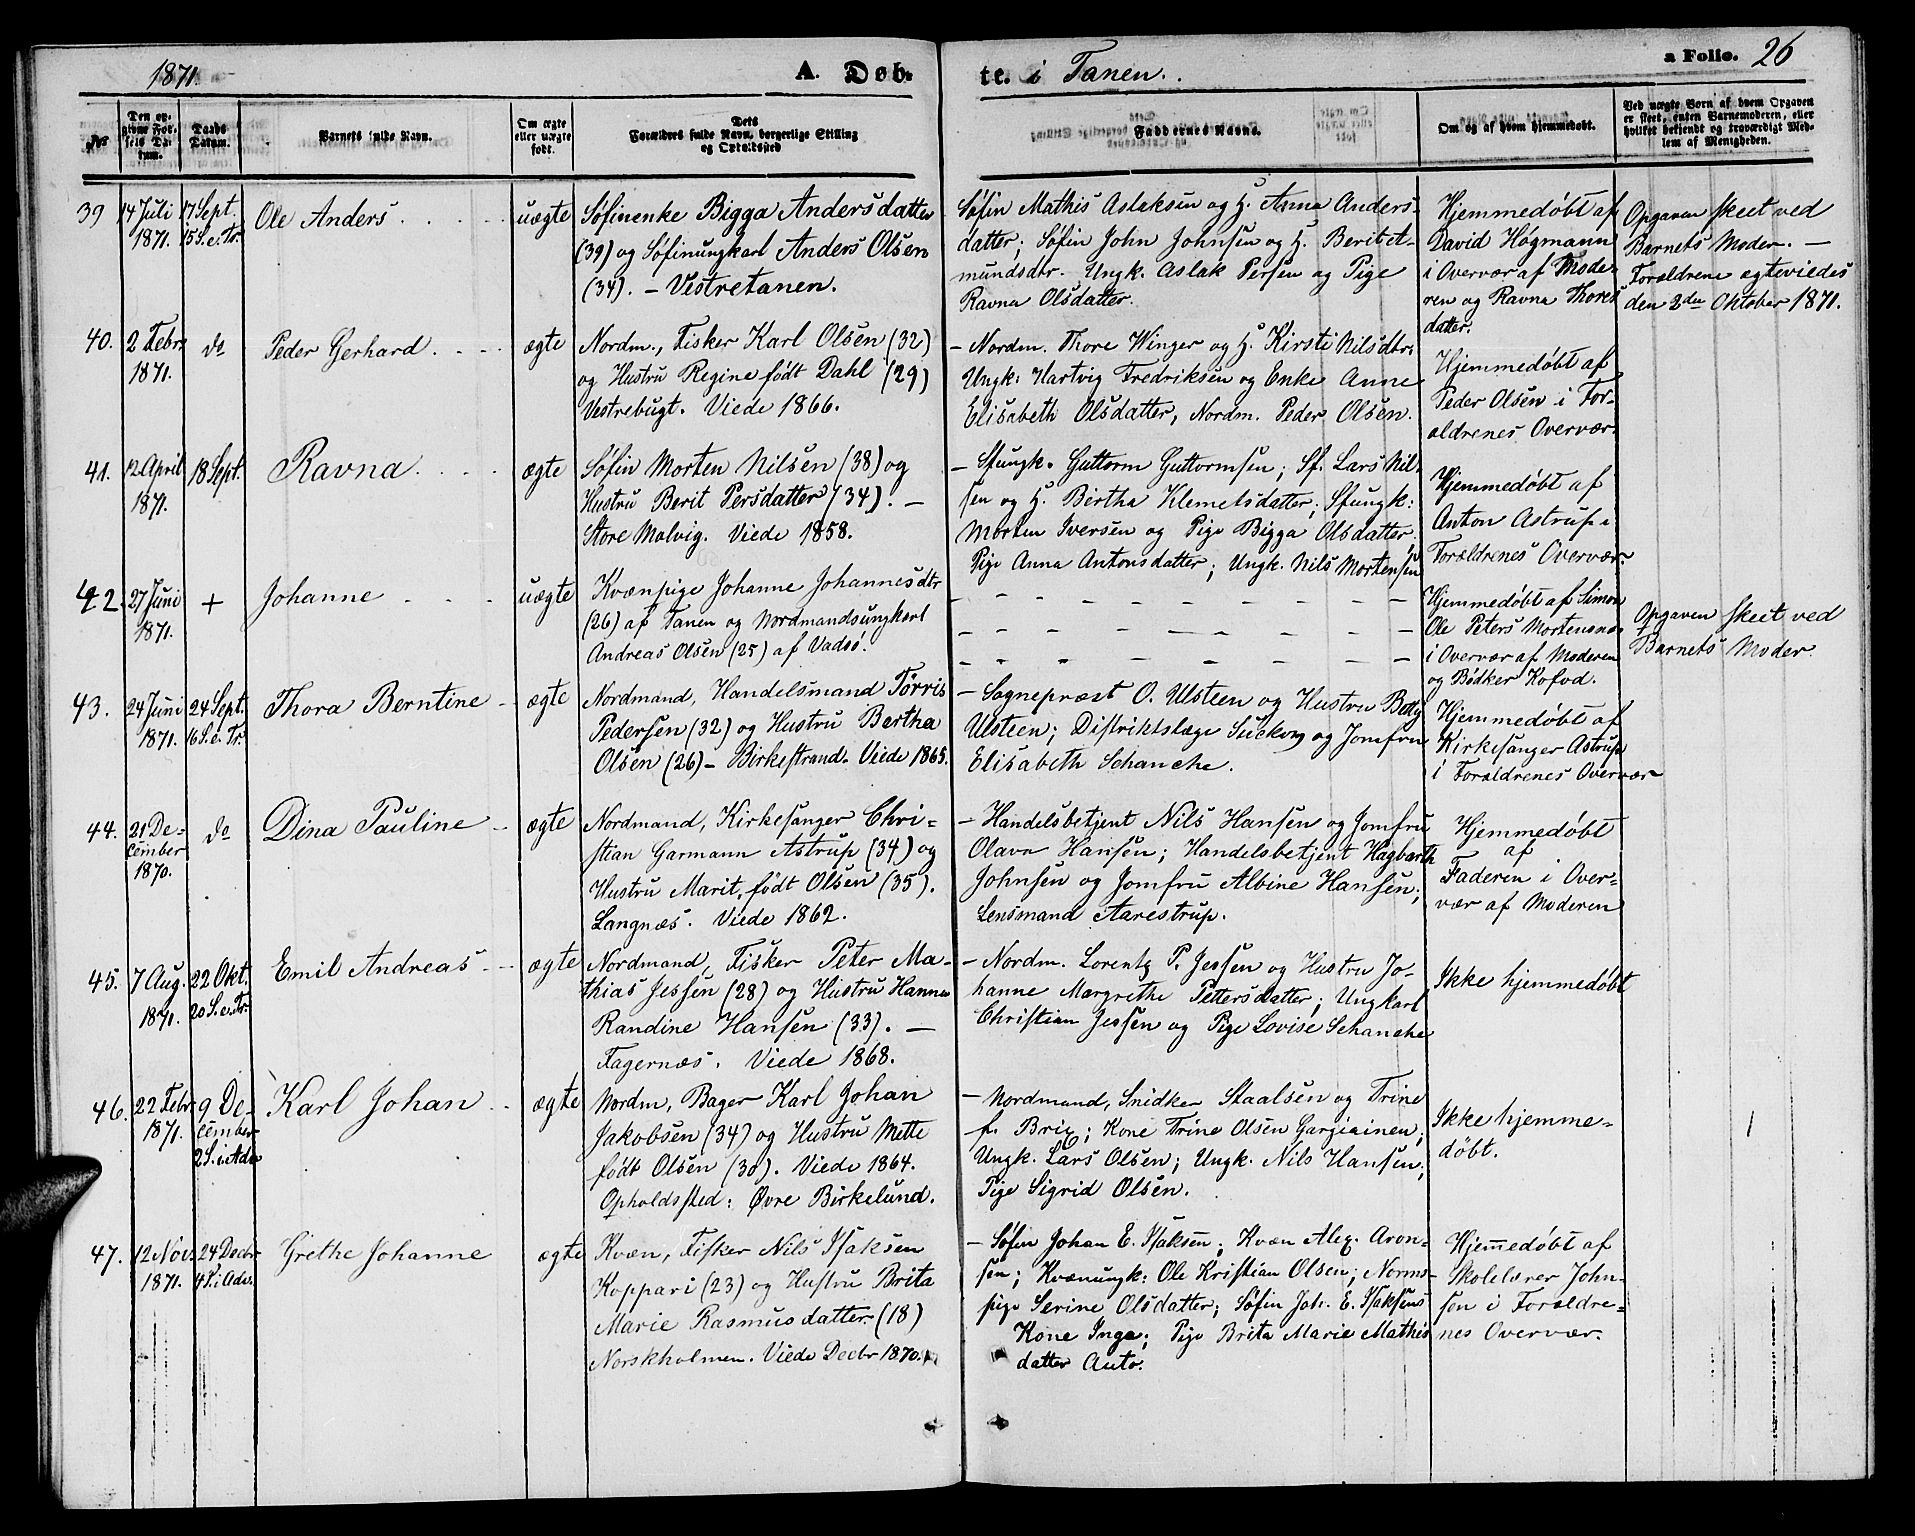 1871. A. Døb- te. i Tanen. a Folio. 26
No
Den op-
givne Fød-
sels Da-
tum.
Daabs
Datum.
Barnets fulde Navn.
Om ægte
eller uægte
født.
Dets
Forældres fulde Navn, borgerlige Stilling
og Opholdssted
Faddernes Navne.
Om og af hvem hjemmedøbt.
Ved uægte Børn af hvem Opgaven
er skeet, enten Barnemoderen, eller
hvilket bekjendt og troværdigt Med-
lem af Menigheden.
39
14 Juli
1871.
17 Sept.
15 S. e. Tr.
Ole Anders
uægte
Søfinenke Bigga Andersdatter
(39) og Søfinungkarl Anders Olsen
(34). – Vestretanen.
Søfin Mathis Aslaksen og H. Anna Anders-
datter; Søfin John Johnsen og H. Berit A-
mundsdtr. Ungk. Aslak Persen og Pige
Ravna Olsdatter.
Hjemmedøbt af
David Høgmann
i Overvær af Mode-
ren og Ravna Thores
datter.
Opgaven skeet ved
Barnets Moder. —
Forældrene ægteviedes
den 2den Oktober 1871.
40.
2 Febr.
1871.
do
Peder Gerhard
ægte
Nordm., Fisker Karl Olsen (32)
og Hustru Regine født Dahl (29)
Vestrebugt. Viede 1866.
– Nordm. Thore Winger og H. Kirsti Nilsdtr.
Ungk: Hartvig Fredriksen og Enke Anne
Elisabeth Olsdatter, Nordm. Peder Olsen.
Hjemmedøbt af
Peder Olsen i For-
ældrenes Overvær.
41.
12 April
1871.
18 Sept.
Ravna
ægte
Søfin Morten Nilsen (38) og
Hustru Berit Persdatter (34). —
Store Molvig. Viede 1858.
– Sfungk. Guttorm Guttormsen; Sf. Lars Nil-
sen og H. Birtha Klemetsdatter; Sfungk:
Morten Iversen og Pige Bigga Olsdatter.
Pige Anna Antonsdatter; Ungk. Nils Mortensen
Hjemmedøbt af
Anton Astrup i
Forældrenes Overvær.
42.
27 Juni
1871.
+
Johanne
uægte
Kvænpige Johanne Johannesdtr
(26) af Tanen og Nordmandsungkarl
Andreas Olsen (25) af Vadsø.
– – – – – – – –
– – – – – – – –
– – – – – – – –
Hjemmedøbt af Simon
Ole Peters Mortensnæs
i Overvær af Moderen
og Bødker Kofod.
Opgaven skeet ved
Barnets Moder.
43.
24 Juni
1871.
24 Sept.
16 S. e. Tr.
Thora Berntine
ægte
Nordmand, Handelsmand Tørris
Pedersen (32) og Hustru Bertha
Olsen (26) – Birkestrand. Viede 1865.
– Sognepræst O. Ulsteen og Hustru Betty
Ulsteen; Distriktslæge Suckow og Jomfru
Elisabeth Schanche.
Hjemmedøbt af
Kirkesanger Astrup
i Forældrenes Overvær
44.
21 De-
cember
1870.
do
Dina Pauline
ægte
Nordmand, Kirkesanger Chri-
stian Garmann Astrup (34) og
Hustru Marit, født Olsen (35).
Langnæs. Viede 1862.
– Handelsbetjent Nils Hansen og Jomfru
Olava Hansen; Handelsbetjent Hagbarth
Johnsen og Jomfru Albine Hansen;
Lensmand Aarestrup.
Hjemmedøbt
af
Faderen i Over-
vær af Moderen
45.
7 Aug.
1871.
22 Okt.
20 S. e. Tr.
Emil Andreas
ægte
Nordmand, Fisker Peter Ma-
thias Jessen (28) og Hustru Hanna
Randine Hansen (33). —
Fagernæs. Viede 1868.
– Nordm. Lorentz P. Jessen og Hustru Jo-
hanne Margrethe Pettersdatter; Ungkarl
Christian Jessen og Pige Lovise Schanche
Ikke hjemmedøbt
46.
22 Febr.
1871.
9 De-
cember
2 S. i Adv.
Karl Johan
ægte
Nordm, Bager Karl Johan
Jakobsen (34) og Hustru Mette
født Olsen (30). Viede 1864.
Opholdssted: Øvre Birkelund.
– Nordmand, Snidker Staalsen og Trine
f. Brix; Kone Trine Olsen Gargiainen;
Ungk. Lars Olsen; Ungk. Nils Hansen;
Pige Sigrid Olsen.
Ikke hjemme-
døbt.
47.
12 Nov.
1871.
24 Decbr
4 S. i Adv.
Grethe Johanne
ægte
Kvæn, Fisker Nils Isaksen
Koppari (23) og Hustru Brita
Marie Rasmusdatter (18)
Norskholmen. Viede Decbr 1870.
– Søfin Johan E. Isaksen; Kvæn Alex. Aron-
sen; Kvænungk: Ole Kristian Olsen; Norms-
pige Serine Olsdatter; Søfin Joh. E. Isaksens
Kone Inga; Pige Brita Marie Mathis
datter Auto.
Hjemmedøbt af
Skolelærer John-
sen i Forældre-
nes Overvær.